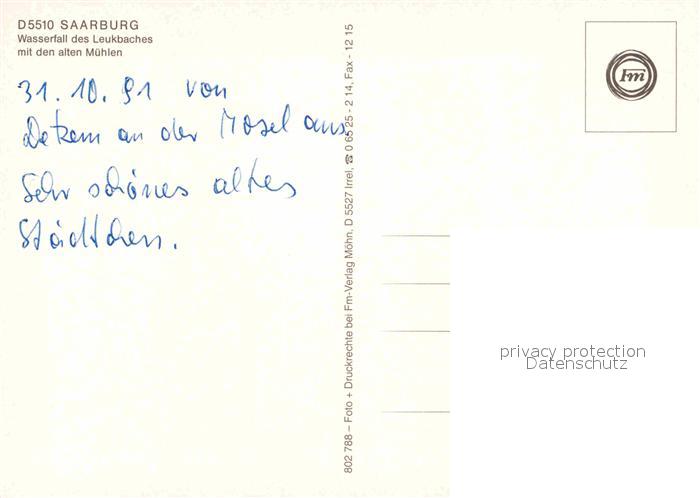 D 5510 SAARBURG
Wasserfall des Leukbaches
mit den alten Mühlen
31. 10. 91 von
Detzem an der Mosel aus.
Sehr schönes altes
Städtchen.
802 788 – Foto + Druckrechte bei Fm-Verlag Möhn, D 5527 Irrel, ☎ 0 65 25 - 2 14, Fax - 12 15
Fm
privacy protection
Datenschutz